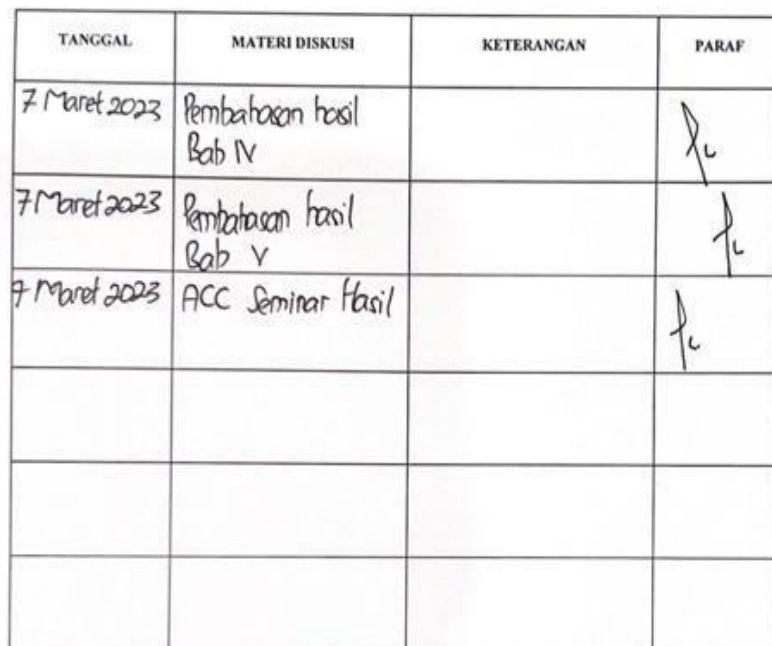 TANGGAL MATERI DISKUSI KETERANGAN PARAF
7 Maret 2023 Pembahasan hasil
Bab IV
7 Maret 2023 Pembahasan hasil
Bab V
7 Maret 2023 ACC Seminar Hasil